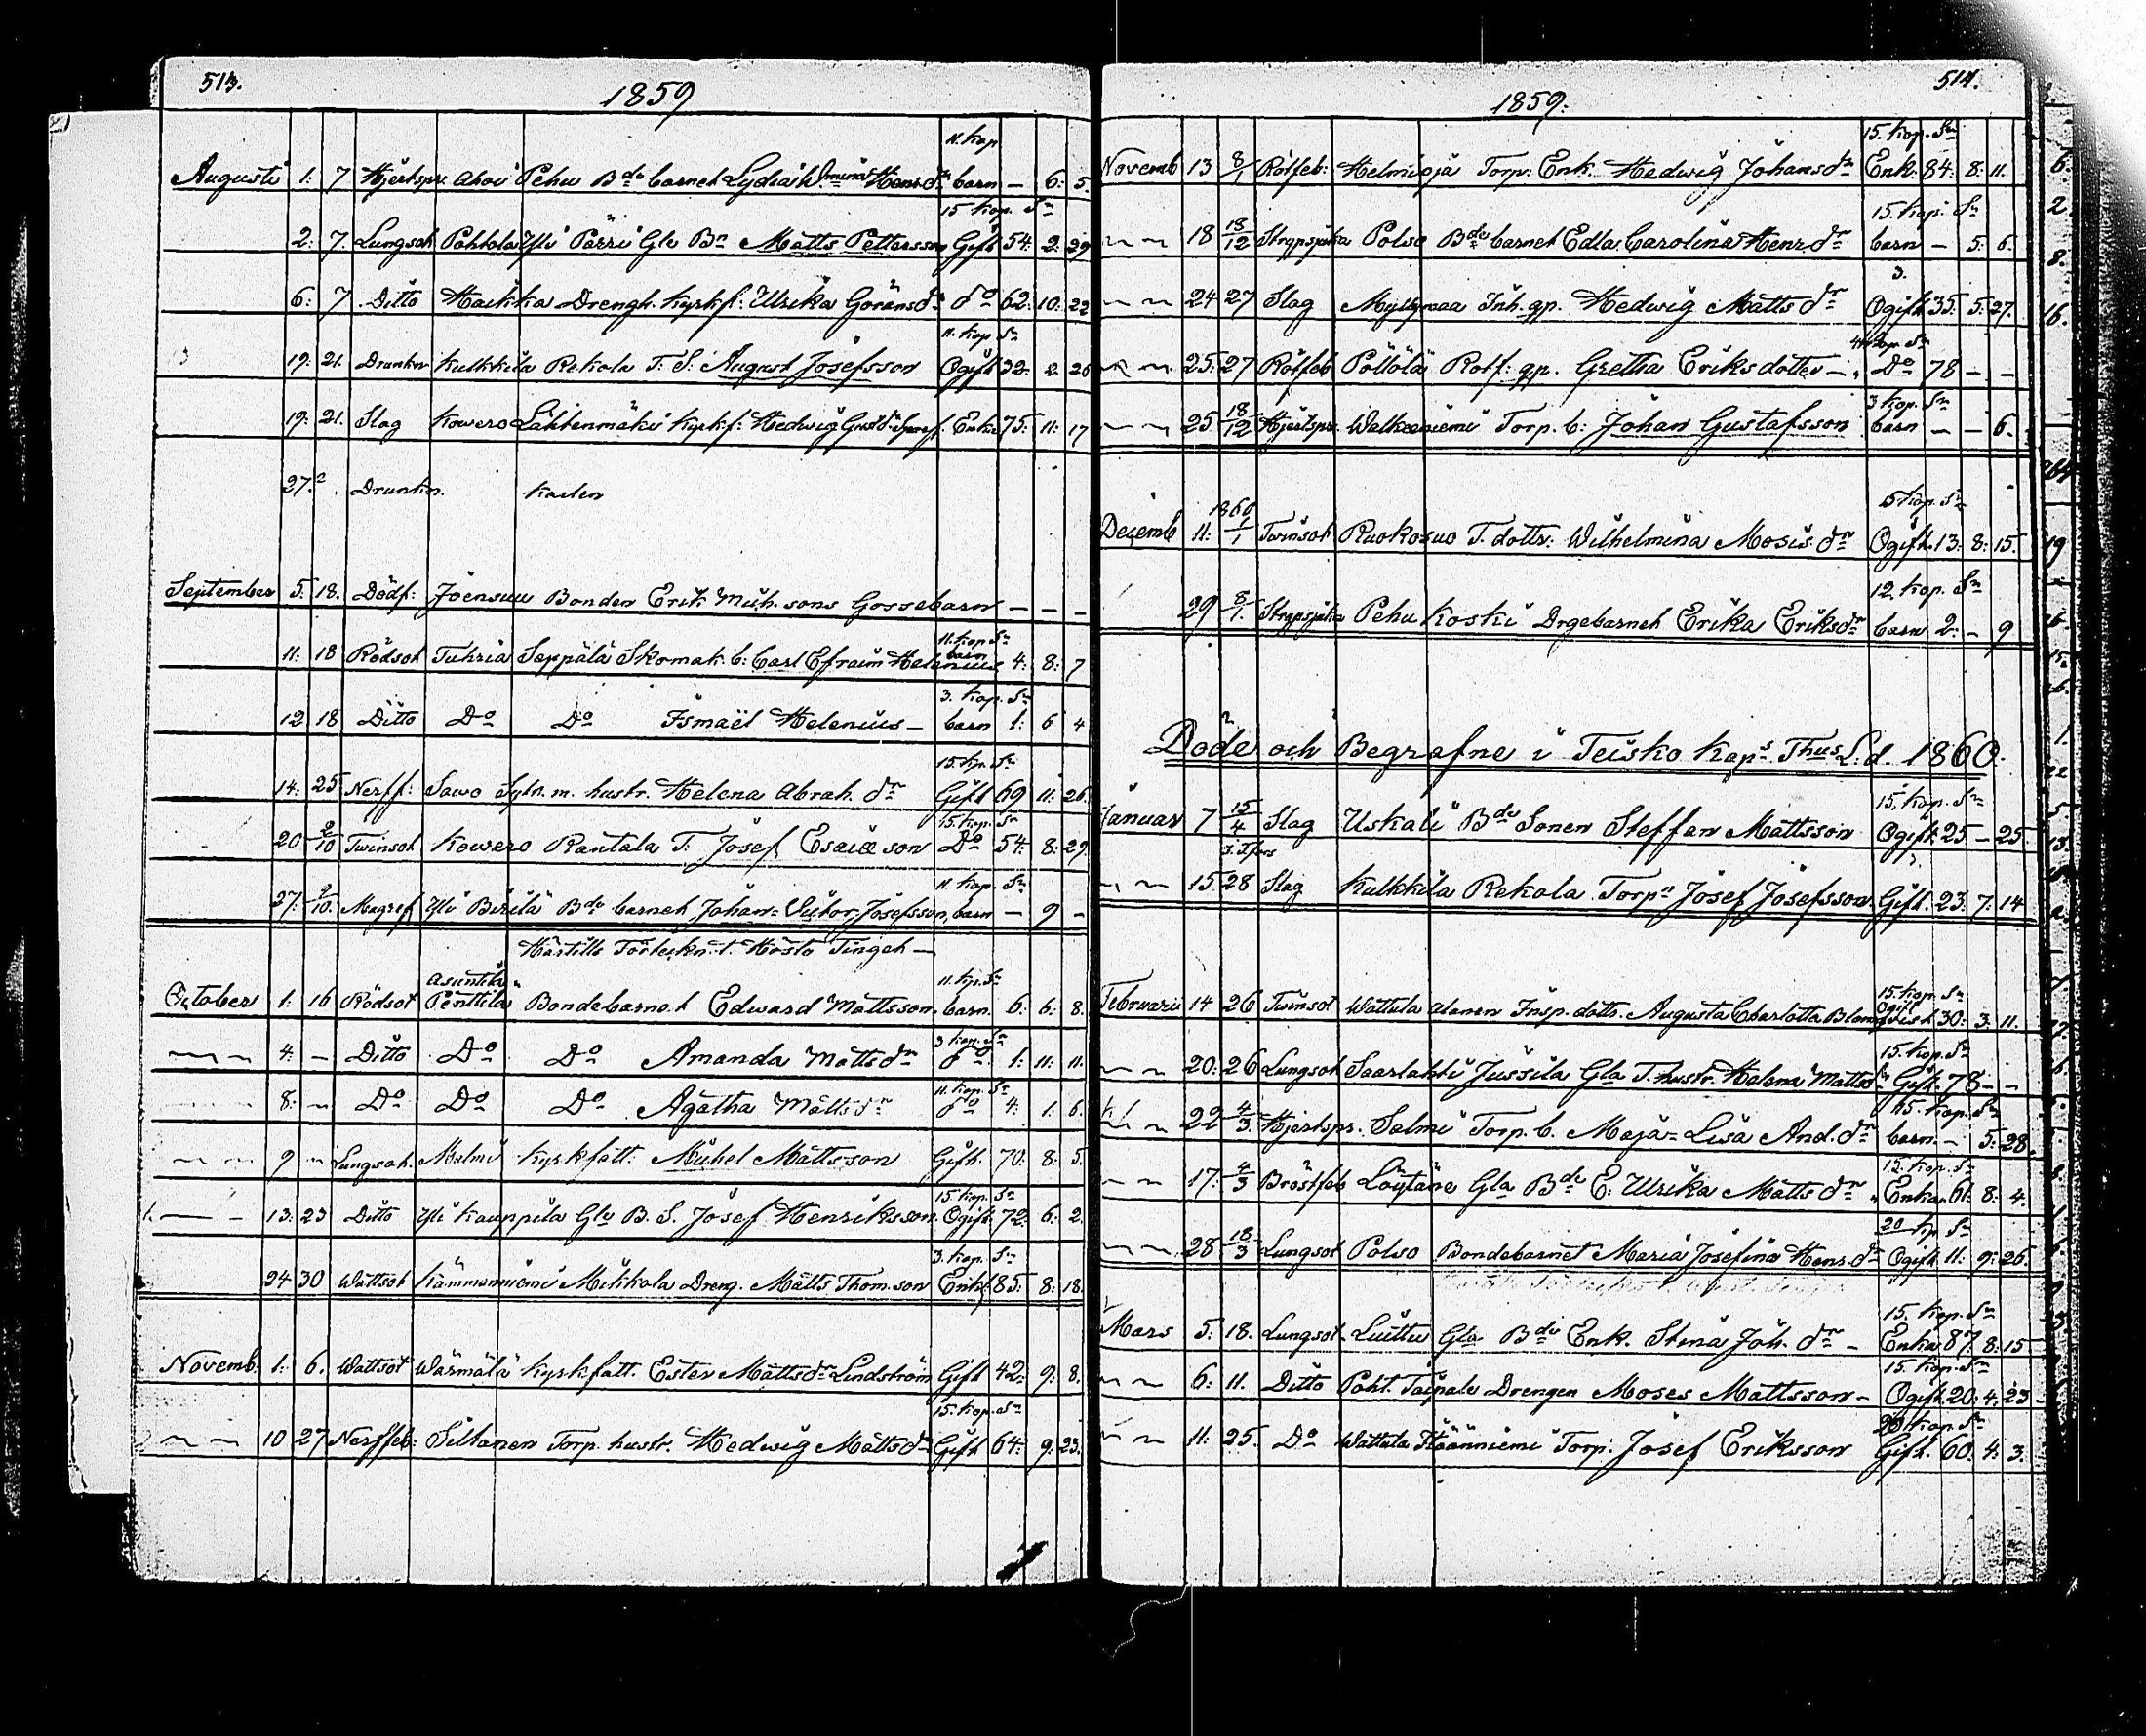 513.
1859
11. Kop
Augusti 1: 7 Hjertspr. Ahoi Pehu Bde barnet Lydia Henr.dr barn — 6: 5
15 Kop. Sr
2: 7. Lungsot Pohtola Yli Pärri Gle Bn Matts Pettersson Gift 54: 2: 29
6: 7. Ditto Haikka Drengh. Kyrkf: Ulrika Göransdr do 62: 10: 22
11. Kop Sr
19: 21. Drunkn Kulkkila Rekola T. S: August Josefsson Ogift 32: 2: 26
19: 21. Slag Kowero Lähtenmäki Kyrkf: Hedwig Enka 75: 11: 17
27. Drunkn.
September 5: 18. Dödf: Joensuu Bonden Erik Mich. sons Gossebarn — — —
11. Kop Sr
11: 18 Rödsot Tuhria Seppälä Skomak. b: Carl Efraim Helenius barn 4: 8: 7
3. Kop. Sr
12 18 Ditto Do Do Ismaël Helenius — barn 1: 6 4
15. Kp. Sr
14: 25 Nerff: Sawo Sytn. m. hustr. Helena Abrah. dr Gift 69 11: 26.
15. Kop. Sr
20 2/10 Twinsot Kowero Rantala T. Josef Esaiæson Do 54: 8: 29.
11. Kop. Sr
27: 2/10. Magref Yli Birilä Bde barnet Johan Victor Josefsson barn — 9 —
Härtills Förteckn. t. Hösts Tinget —
October 1: 16 Rödsot Asuntila Penttilä Bondebarnet Edward Mattsson 11. Kp. Sr barn. 6: 6: 8.
3 Kop. Sr
4: — Ditto Do Do Amanda Mattsdr do 1: 11: 11.
11. Kop. Sr
8: Do Do Do Agatha Mattsdr do 4: 1: 6.
9 Lungsot. Malmi Kyrkfatt: Michel Mattsson Gift. 70: 8: 5.
15 Kop. Sr
13: 23 Ditto Yli Kauppila Gle B. S. Josef Henriksson Ogift 72: 6: 2.
3. Kop. Sr
24 30 Wattsot Kämmenniemi Mikkola Dreng. Matts Thom.son Enkl 85: 8: 18.
Novemb. 1: 6. Wattsot Wärmälä Kyrkfatt. Ester Mattsdr Lindström Gift 42: 9: 8.
15. Kop. Sr
10 27 Nerffeb: Siltanen Torp. hustr. Hedwig Mattsdr Gift 64: 9: 23.
514.
1859.
15. Kop. Sr
Novemb 13 8/1 Rötfeb: Helmioja Torp. Enk. Hedwig Johansdr Enk. 84: 8: 11.
15. Kop. Sr
18 18/12 Strypsjuka Polso Bde barnet Edla Carolina Henr.dr barn — 5: 6.
3.
24 27 Slag Myllymaa Inh. qp. Hedwig Mattsdr Ogift 35: 5: 27.
25: 27 Rötfeb Pöllölä Rotf: qp. Gretha Eriksdotter — Do 78 — —
3 Kop. Sr
25 18/12 Hjertspr. Walkeeniemi Torp. b: Johan Gustafsson barn — — 6.
Decemb 11: 1860 1/1 Twinsot Ruokosuo T. dottr: Wilhelmina Mosis dr Ogift. 13: 8: 15.
12 Kop. Sr
29 8/1. Strypsjuka Pehu Koski Drgebarnet Erika Eriksdr barn 2: — 9
Döde och Begrafne i Teisko Kaps Thus L. d. 1860.
15. Kop. Sr
Januar 7 15/4 Slag Uskali Bde Sonen Steffan Mattsson Ogift. 25 — 25.
15 28 Slag Kulkkila Rekola Torpn Josef Josefsson Gift. 23: 7: 14
15. Kop. Sr
Februarii 14 26 Twinsot Wattula Alanen Insp. dottr. Augusta Charlotta Ogift 30: 3: 11.
15. Kop. Sr
20: 26 Lungsot Saarlahti Jussila Gla T. hustr. Helena Mattsdr Gift. 78 — —
15. Kop. Sr
22 4/3 Hjertspr. Salmi Torp. b. Maja Lisa And. dr barn — 5: 28.
15. Kop. Sr
17: 4/3 Bröstfeb Löytäne Gla Bde E: Ulrika Mattsdr Enka 61: 8: 4.
20 Kp. Sr
28 18/3 Lungsot Polso Bondebarnet Maria Josefina Henr. dr Ogift 11: 9: 26.
15. Kop. Sr
Mars 5: 18. Lungsot Luittu Gla Bde Enk. Stina Joh. dr — Enka 87. 8: 15
15. Kop. Sr
6: 11. Ditto Poht. Taipale Drengen Moses Mattsson — Ogift. 20: 4: 23
20 Kop. Sr
11: 25. Do Wattula Torp: Josef Eriksson Gift. 60. 4: 3.